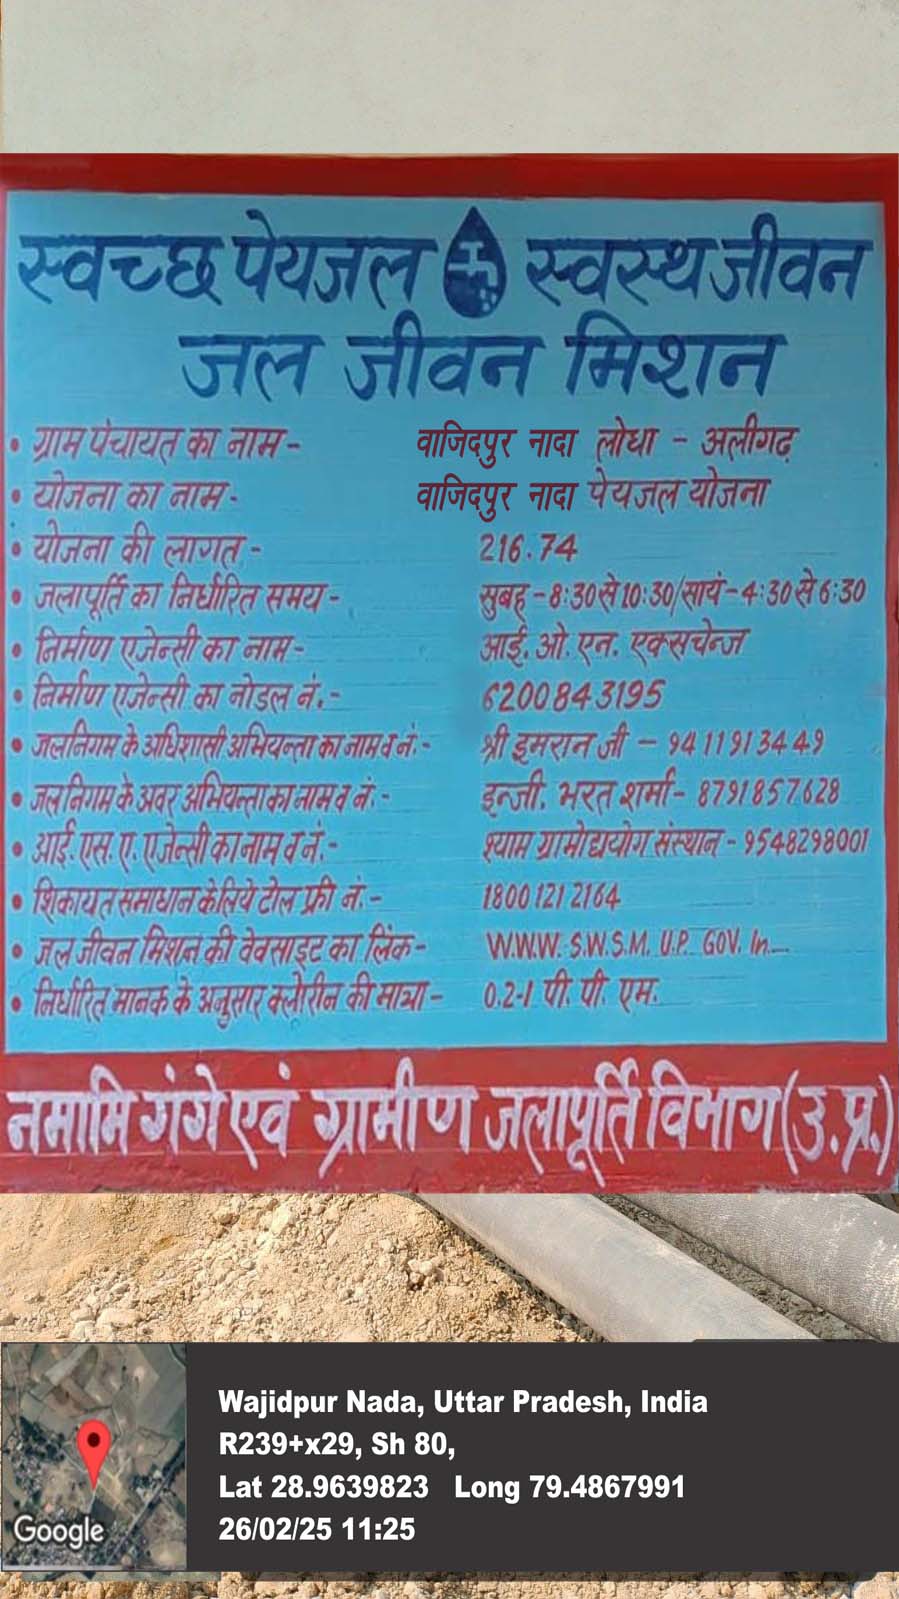 स्वच्छ पेयजल स्वस्थ जीवन
जल जीवन मिशन
• ग्राम पंचायत का नाम - वाजिदपुर नादा लोधा - अलीगढ़
• योजना का नाम - वाजिदपुर नादा पेयजल योजना
• योजना की लागत - 216.74
• जलापूर्ति का निर्धारित समय - सुबह - 8:30 से 10:30/सायं - 4:30 से 6:30
• निर्माण एजेन्सी का नाम - आई. ओ. एन. एक्सचेन्ज
• निर्माण एजेन्सी का नोडल नं. - 6200843195
• जलनिगम के अधिशासी अभियन्ता का नाम व नं. - श्री इमरान जी - 9411913449
• जलनिगम के अवर अभियन्ता का नाम व नं. - इन्जी. भरत शर्मा - 8791857628
• आई. एस. ए. एजेन्सी का नाम व नं. - श्याम ग्रामोद्ययोग संस्थान - 9548298001
• शिकायत समाधान के लिये टोल फ्री नं. - 18001212164
• जल जीवन मिशन की वेवसाइट का लिंक - W.W.W. S.W.S.M. U.P. GOV. In.
• निर्धारित मानक के अनुसार क्लोरीन की मात्रा - 0.2-1 पी. पी. एम.
नमामि गंगे एवं ग्रामीण जलापूर्ति विभाग (उ.प्र.)
Wajidpur Nada, Uttar Pradesh, India
R239+x29, Sh 80,
Lat 28.9639823 Long 79.4867991
26/02/25 11:25
Google